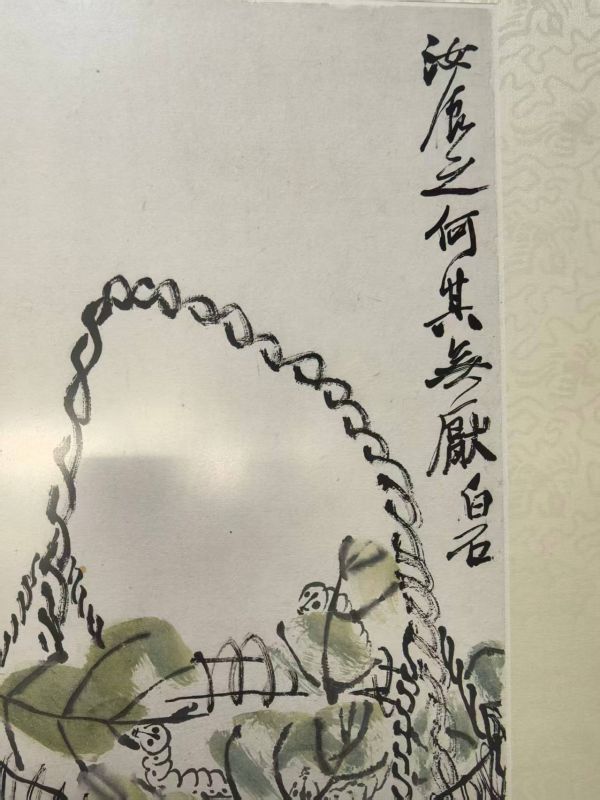 汝之何其無厭
白石